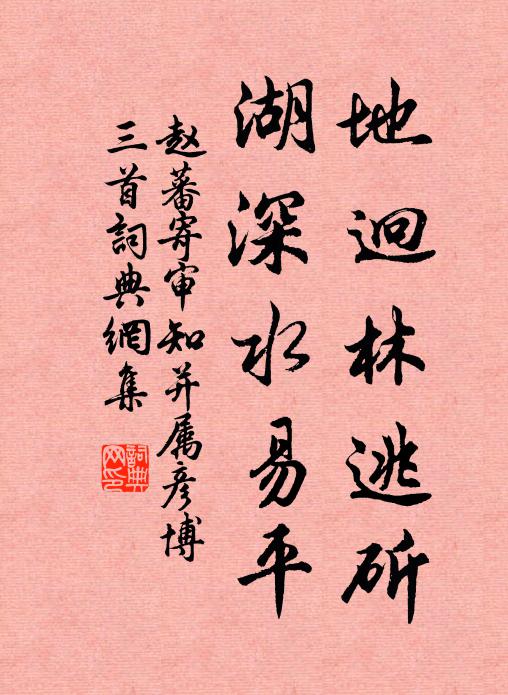 地迥林逃斫
湖深水易平
赵蕃寄审知并属彦博
三首詞典網集
詞典网印